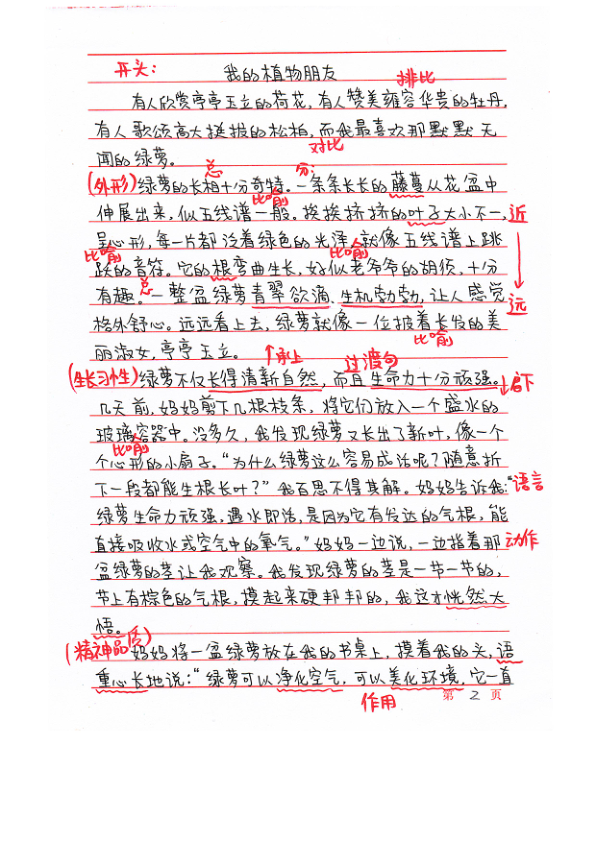 开头： 我的植物朋友 排比
有人欣赏亭亭玉立的荷花，有人赞美雍容华贵的牡丹，
有人歌颂高大挺拔的松柏，而我最喜欢那默默无
对比
闻的绿萝。 总 分：
(外形) 绿萝的长相十分奇特。一条条长长的藤蔓从花盆中
比喻
伸展出来，似五线谱一般。挨挨挤挤的叶子大小不一， 近
呈心形，每一片都泛着绿色的光泽，就像五线谱上跳
比喻 比喻
跃的音符。它的根弯曲生长，好似老爷爷的胡须，十分
总
有趣。一整盆绿萝青翠欲滴、生机勃勃，让人感觉 远
格外舒心。远远看上去，绿萝就像一位披着长发的美
比喻
丽淑女，亭亭玉立。 承上 过渡句
(生长习性) 绿萝不仅长得清新自然，而且生命力十分顽强。 启下
几天前，妈妈剪下几根枝条，将它们放入一个盛水的
玻璃容器中。没多久，我发现绿萝又长出了新叶，像一个
比喻
个心形的小扇子。“为什么绿萝这么容易成活呢？随意折
下一段都能生根长叶？”我百思不得其解。妈妈告诉我：“ 语言
绿萝生命力顽强，遇水即活，是因为它有发达的气根，能
直接吸收水或空气中的氧气。”妈妈一边说，一边指着那 动作
盆绿萝的茎让我观察。我发现绿萝的茎是一节一节的，
节上有棕色的气根，摸起来硬邦邦的，我这才恍然大
悟。
(精神品质) 妈妈将一盆绿萝放在我的书桌上，摸着我的头，语
重心长地说：“绿萝可以净化空气，可以美化环境，它一直
作用 第 2 页